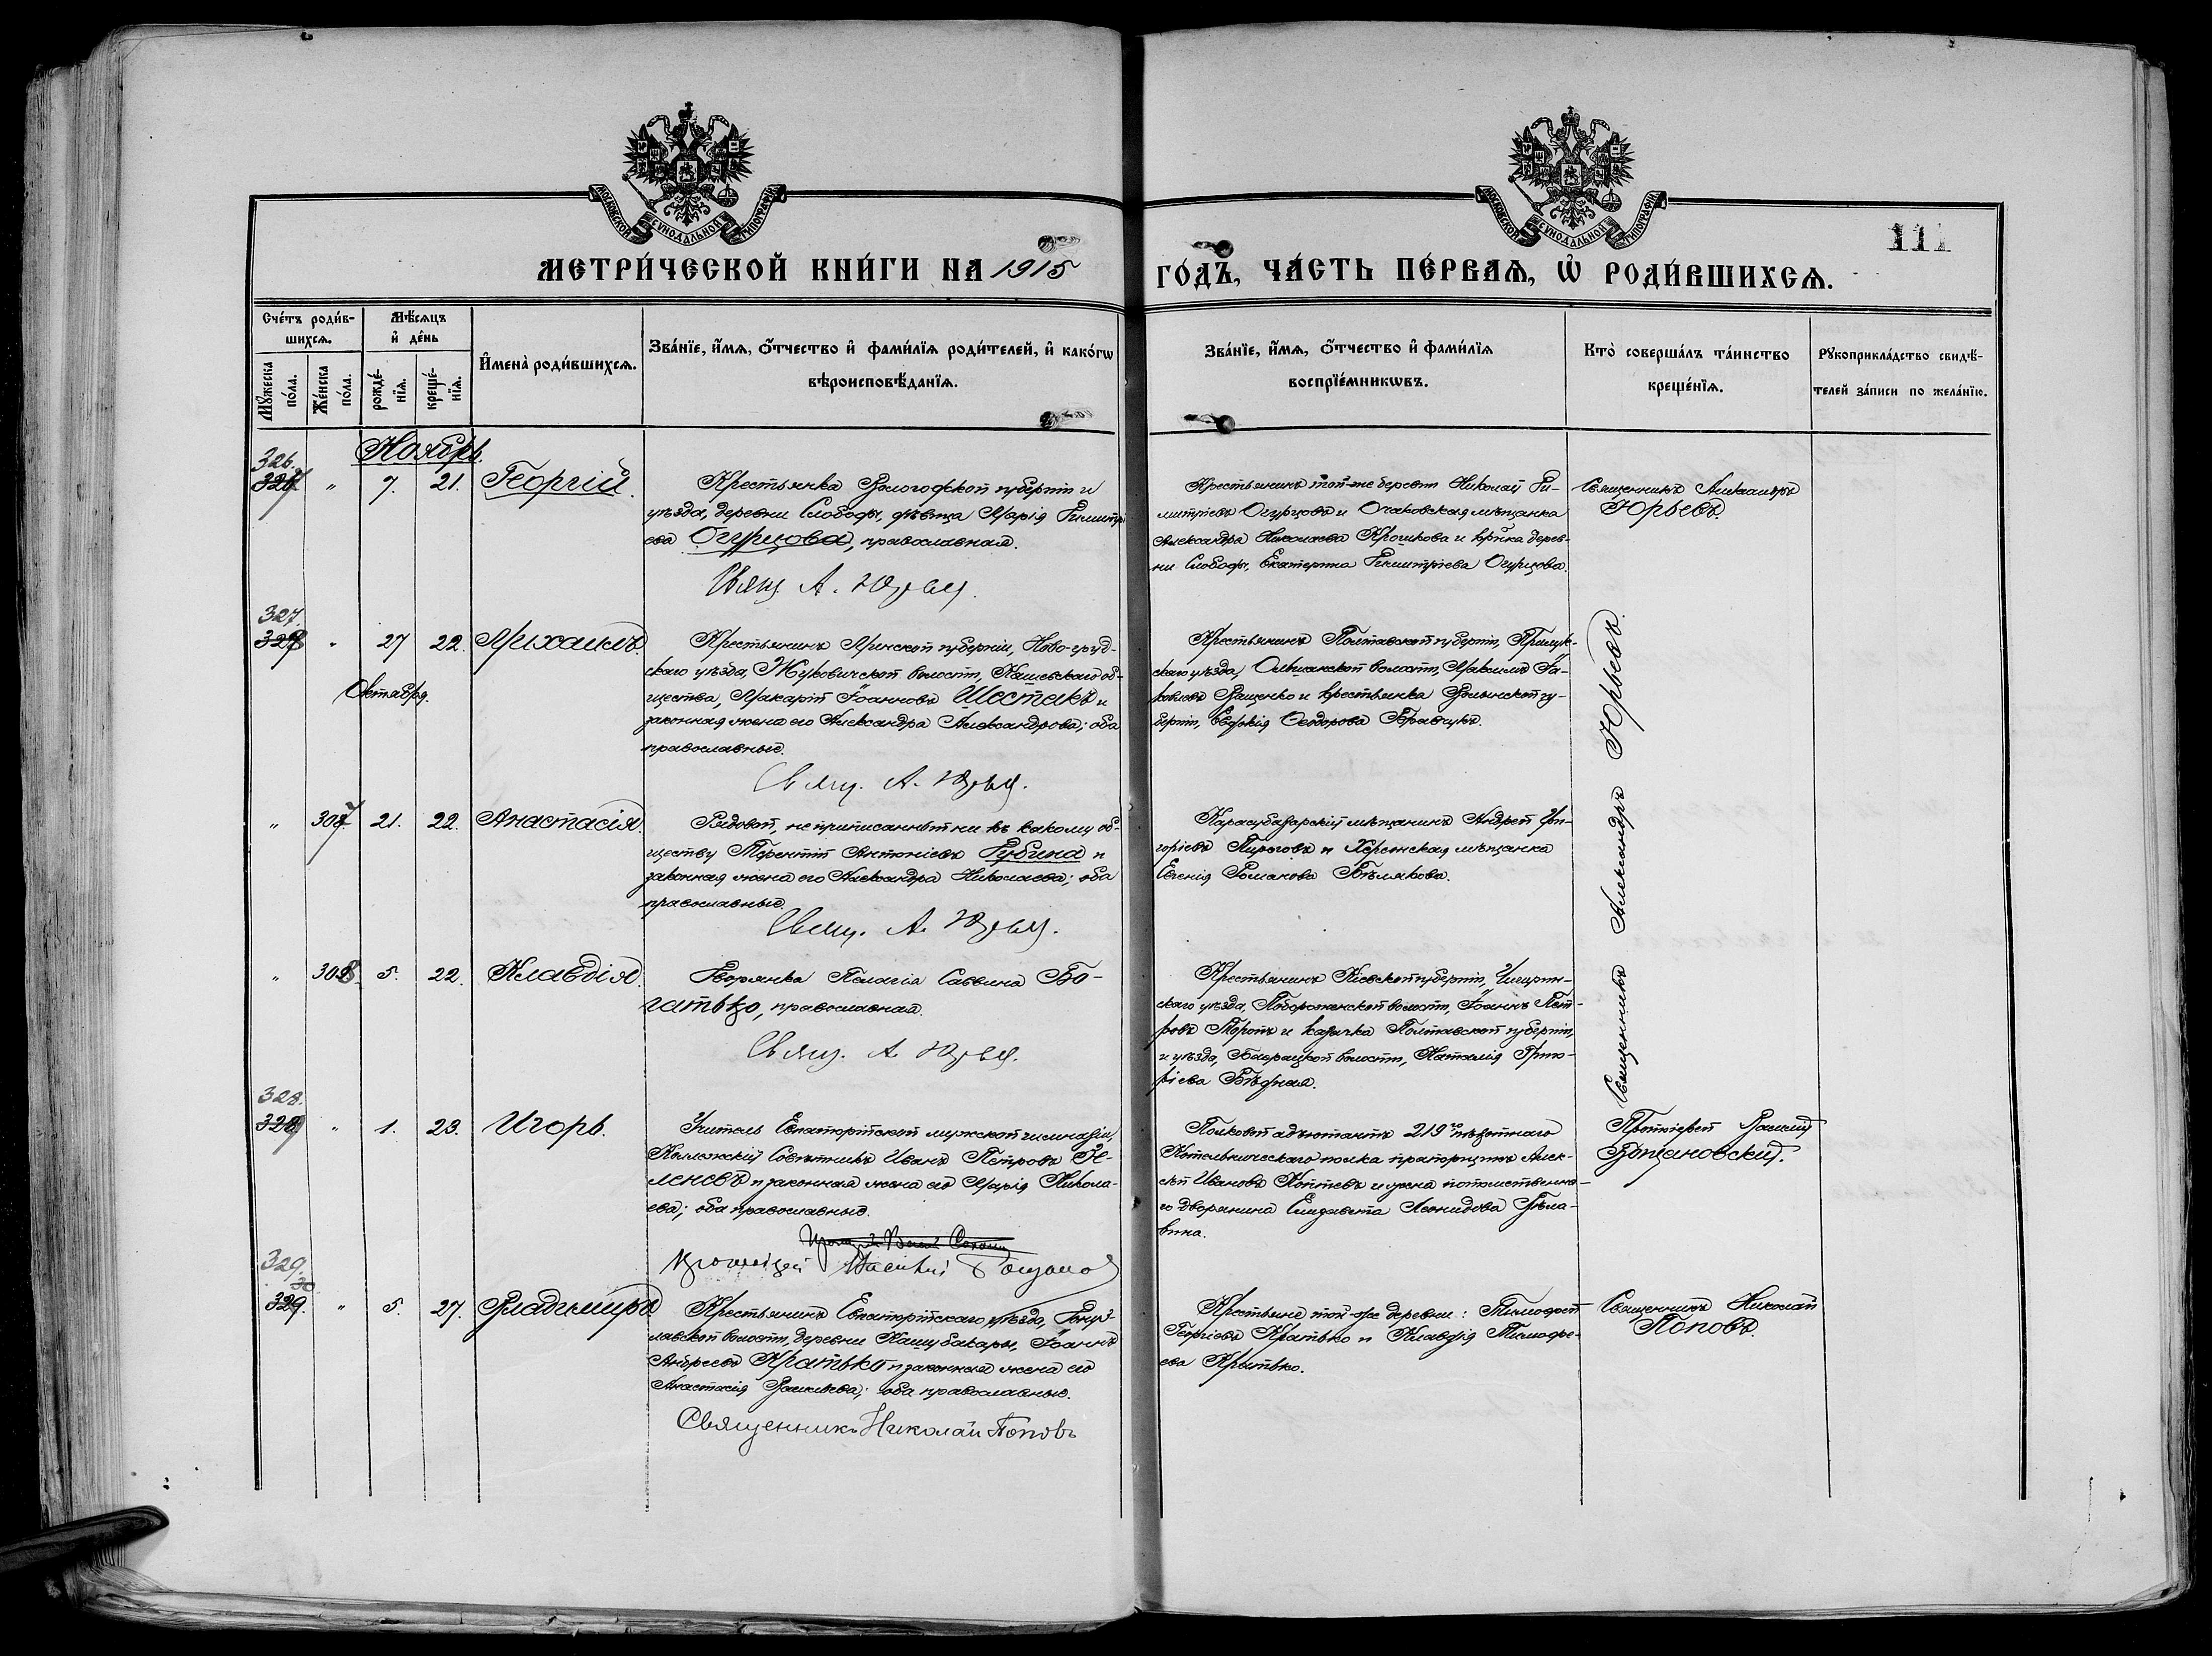 МОСКОВСКОЙ СѴНОДАЛЬНОЙ ТИПОГРАФІИ
МОСКОВСКОЙ СѴНОДАЛЬНОЙ ТИПОГРАФІИ
111
МЕТРИ́ЧЕСКОЙ КНИ́ГИ НА 1915
ГО́ДЪ, ЧА́СТЬ ПЕ́РВАѦ, Ѡ҆ РОДИ́ВШИХСѦ.
Сче́тъ роди́вшихсѧ.
Мꙋ́жеска по́ла.
Же́нска по́ла.
Мѣ́сѧцъ и҆ де́нь
рожде́нїѧ.
креще́нїѧ.
И҆мена̀ роди́вшихсѧ.
Зва́нїе, и҆́мѧ, ѻ҆́тчество и҆ фами́лїѧ роди́телей, и҆ како́гѡ
вѣроисповѣ́данїѧ.
Зва́нїе, и҆́мѧ, ѻ҆́тчество и҆ фами́лїѧ
воспрїе́мникѡвъ.
Кто̀ соверша́лъ та́инство
креще́нїѧ.
Рꙋкоприкла́дство свидѣ́-
телей за́писи по жела́нїю.
Ноябрь.
326.
327 " 7. 21. Георгій.
Крестьянка Вологодской губерніи и
уѣзда, деревни Слободы, дѣвица Марія Димитрі
ева Огурцова, православная.
Свящ. А. Юрьевъ.
Крестьянинъ той-же деревни Николай Ди-
митріевъ Огурцовъ и Очаковская мѣщанка
Александра Николаева Крошкова и кр-ка дерев-
ни Слободы, Екатерина Димитріева Огурцова.
Священникъ Александръ
Юрьевъ.
327.
328 " 27 22. Михаилъ.
Октября.
Крестьянинъ Минской губерніи, Ново-груд-
скаго уѣзда, Жуковичской волости, Кашевскаго об-
щества, Макарій Іоанновъ Шестакъ и
законная жена его Александра Александрова; оба
православные.
Свящ. А. Юрьевъ.
Крестьянинъ Полтавской губерніи, Прилук-
скаго уѣзда, Ольшанской волости, Максимъ Іа-
ковлевъ Ващенко и крестьянка Волынской гу-
берніи, Евдокія Ѳеодорова Кравчукъ.
Священникъ Александръ Юрьевъ.
" 307. 21. 22. Анастасія.
Рядовой, не приписанный ни къ какому об-
ществу Терентій Антоніевъ Губина и
законная жена его Александра Николаева; оба
православные.
Свящ. А. Юрьевъ.
Карасубазарскій мѣщанинъ Андрей Гри-
горіевъ Пироговъ и Херсонская мѣщанка
Евгенія Романова Бѣлякова.
" 308. 5. 22. Клавдія.
Дворянка Пелагія Саввина Бо-
гатько, православная.
Свящ. А. Юрьевъ.
Крестьянинъ Кіевской губерніи, Чигирин-
скаго уѣзда, Іоаннъ Пет-
ровъ и казачка Полтавской губерніи,
и уѣзда, волости, Наталія Григо-
ріева Бѣдная.
328.
329 " 1. 23. Игорь.
Учитель Евпаторійской мужской гимназіи,
Коллежскій Совѣтникъ Иванъ Петровъ Зе-
леневъ и законная жена его Марія Никола-
ева; оба православные.
Протоіерей Василій
Полковой адъютантъ 219 го пѣхотнаго
Котельническаго полка прапорщикъ Алек-
сѣй Ивановъ Коптевъ и жена потомственна-
го дворянина Елизавета Леонидова
Протоіерей Василій
329.
30
329. " 5. 27. Владиміръ
Крестьянинъ Евпаторійскаго уѣзда, Донуз-
лавской волости, деревни Іоаннъ
Андреевъ Кратько и законная жена его
Анастасія Васильева; оба православные.
Священникъ Николай Поповъ
Крестьяне той-же деревни: Тимоѳей
Георгіевъ Кратько и Клавдія Тимоѳе-
ева Кратько.
Священникъ Николай
Поповъ.